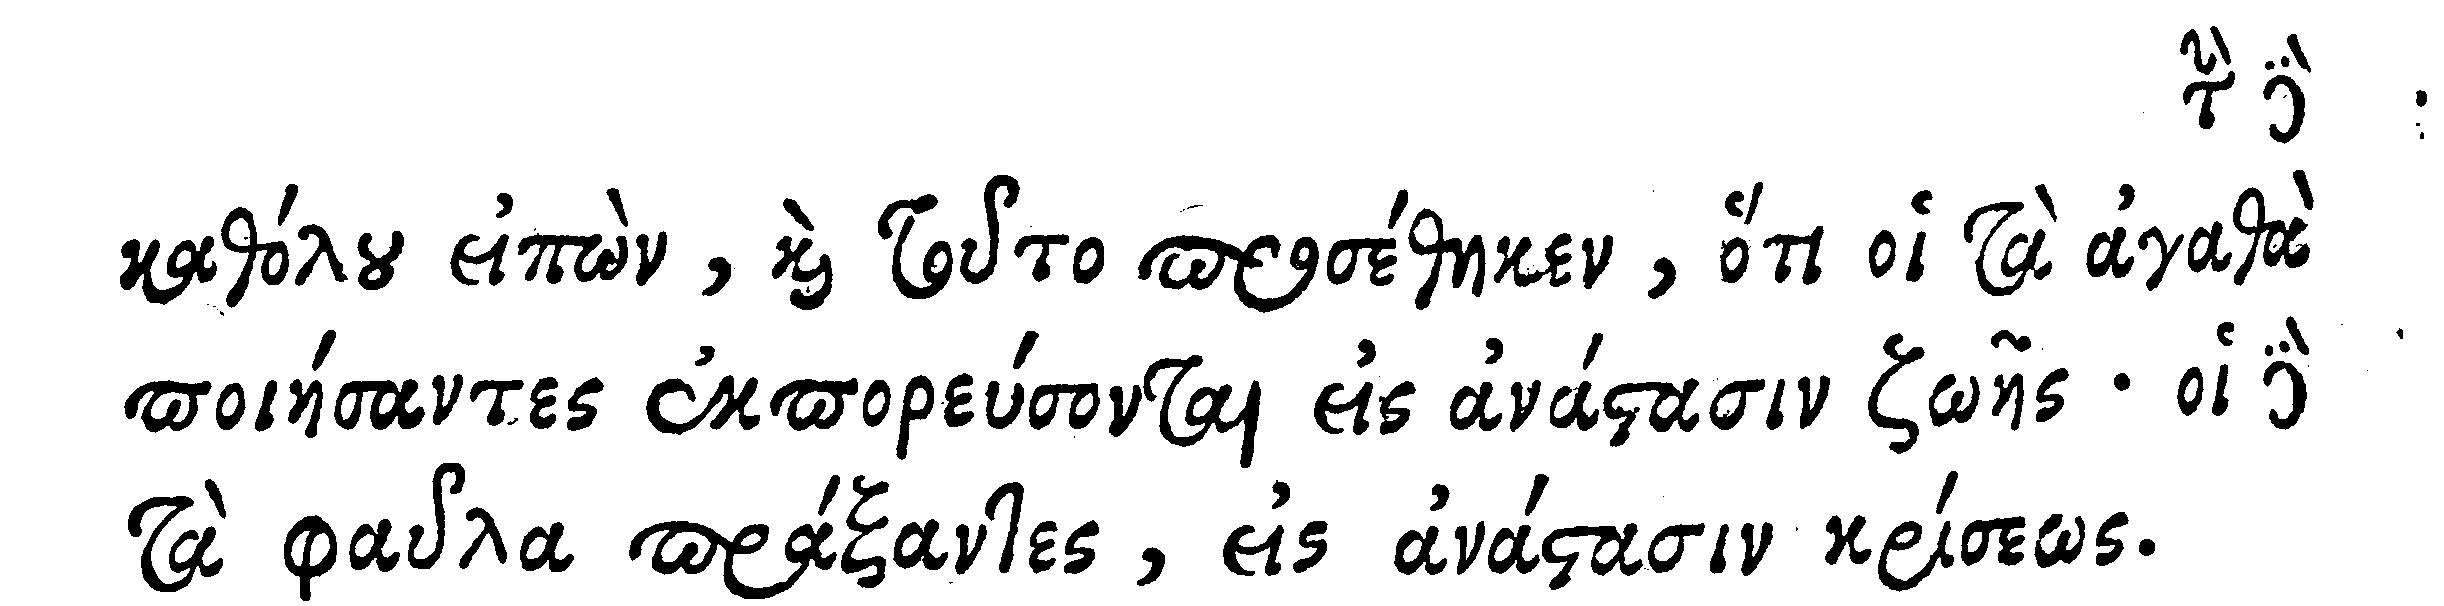 τὸ δὲ
καθόλου εἰπὼν, καὶ τοῦτο προσέθηκεν, ὅτι οἱ τὰ ἀγαθὰ
ποιήσαντες ἐκπορεύσονται εἰς ἀνάστασιν ζωῆς · οἱ δὲ
τὰ φαῦλα πράξαντες, εἰς ἀνάστασιν κρίσεως.